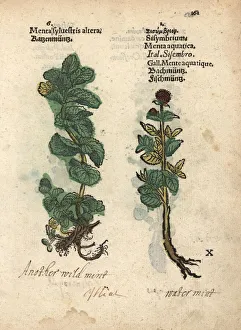 6.
Menta sylvestris altera,
Katzenmüntz.
Sisymbrium.
Menta aquatica,
Ital. Sisembro.
Gall. Mente aquatique.
Bachmüntz.
Fischmüntz.
X
Another wild mint
water mint